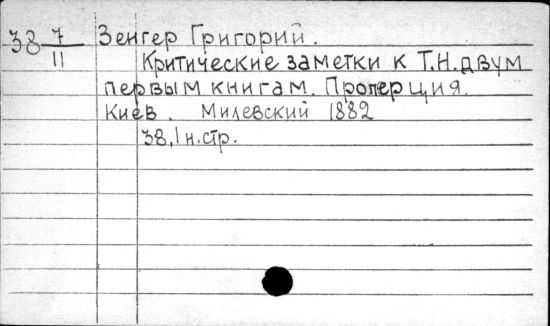 38 7/11 Зенгер Григорий.
Критические заметки к Т.Н. двум
первым книгам. Проперция.
Киев. Милевский 1882
38, 1 н. стр.